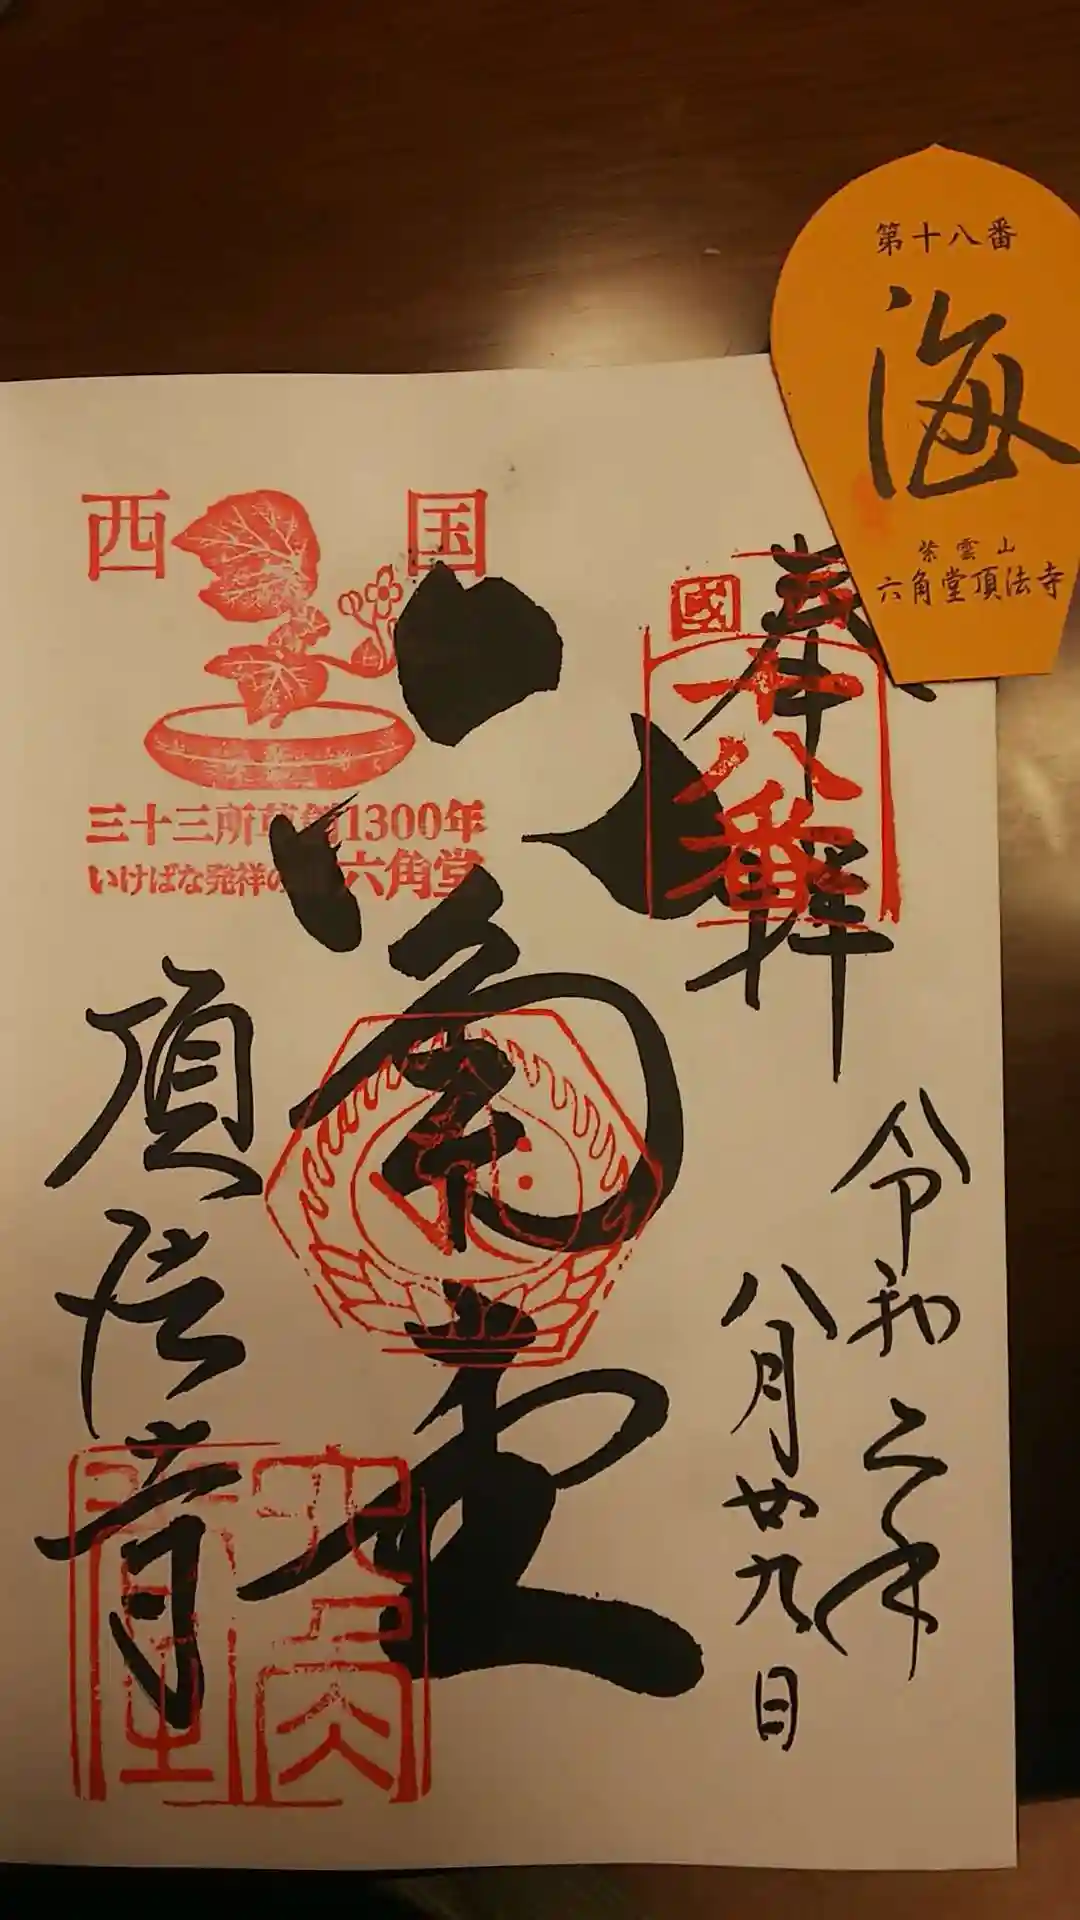 第十八番
海
紫雲山
六角堂頂法寺
奉拝
西國
十八番
令和二年
八月廿九日
六角堂
西国
三十三所草創1300年
いけばな発祥の地 六角堂
頂法寺